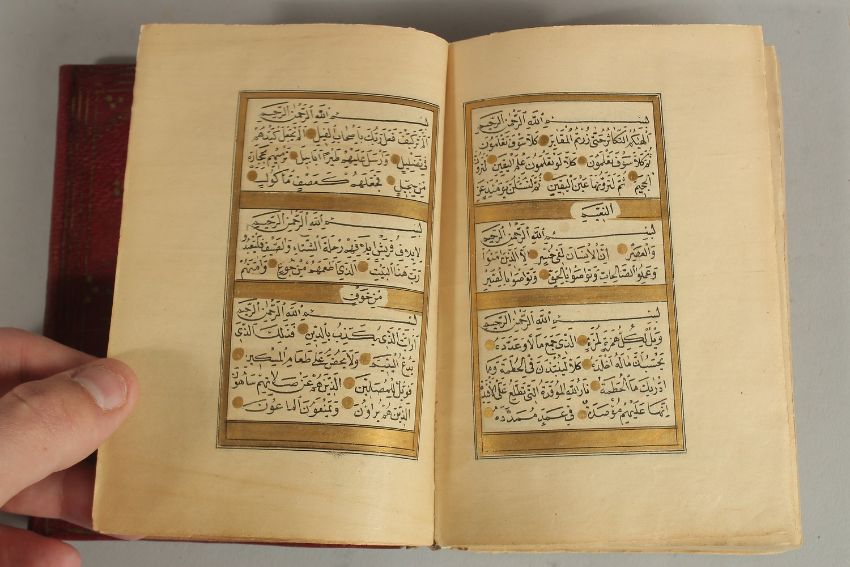 بسم الله الرحمن الرحيم
الهيكم التكاثر حتى زرتم المقابر كلا سوف تعلمون
ثم كلا سوف تعلمون كلا لو تعلمون علم اليقين لترون
الجحيم ثم لترونها عين اليقين ثم لتسئلن يومئذ عن
النعيم
بسم الله الرحمن الرحيم
والعصر ان الانسان لفي خسر الا الذين امنوا
وعملوا الصالحات وتواصوا بالحق وتواصوا بالصبر
بسم الله الرحمن الرحيم
ويل لكل همزة لمزة الذي جمع مالا وعدده
يحسب ان ماله اخلده كلا لينبذن في الحطمة وما
ادريك ما الحطمة نار الله الموقدة التي تطلع على الافئدة
انها عليهم مؤصدة في عمد ممددة
بسم الله الرحمن الرحيم
الم تر كيف فعل ربك باصحاب الفيل الم يجعل كيدهم
في تضليل وارسل عليهم طيرا ابابيل ترميهم بحجارة
من سجيل فجعلهم كعصف ماكول
بسم الله الرحمن الرحيم
لايلاف قريش ايلافهم رحلة الشتاء والصيف فليعبدوا
رب هذا البيت الذي اطعمهم من جوع وامنهم
من خوف
بسم الله الرحمن الرحيم
ارايت الذي يكذب بالدين فذلك الذي
يدع اليتيم ولا يحض على طعام المسكين
فويل للمصلين الذين هم عن صلاتهم ساهون
الذين هم يراؤن ويمنعون الماعون